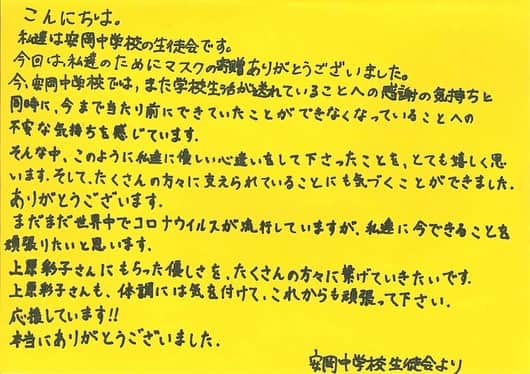 こんにちは。
私達は安岡中学校の生徒会です。
今回は、私達のためにマスクの寄贈ありがとうございました。
今、安岡中学校では、また学校生活が送れていることへの感謝の気持ちと
同時に、今まで当たり前にできていたことができなくなっていることへの
不安な気持ちを感じています。
そんな中、このように私達に優しい心遣いをして下さったことを、とても嬉しく思
います。そして、たくさんの方々に支えられていることにも気づくことができました。
ありがとうございます.
まだまだ世界中でコロナウイルスが流行していますが、私達に今できることを
頑張りたいと思います.
上原彩子さんにもらった優しさを、たくさんの方々に繋げていきたいです.
上原彩子さんも、体調には気を付けて、これからも頑張って下さい.
応援しています!!
本当にありがとうございました.
安岡中学校生徒会より